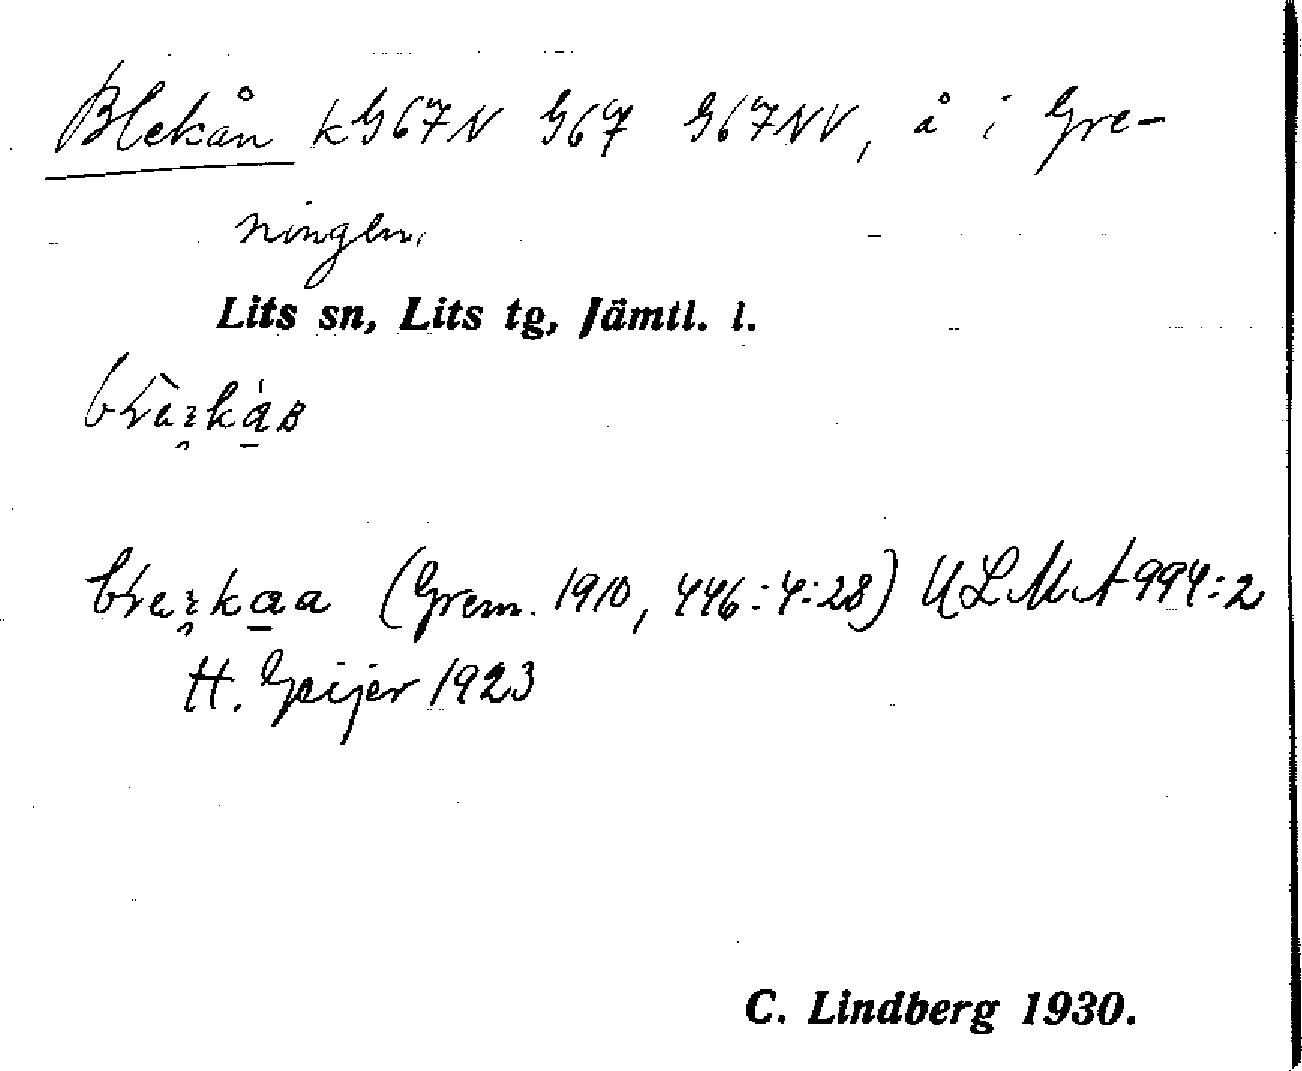 Blekån kG67N G67 G67NV, å i Gre-
ningen.
Lits sn, Lits tg, Jämtl. l.
(Grem. 1910, 446:4:28) ULMA 994:2
H. Geijer 1923
C. Lindberg 1930.